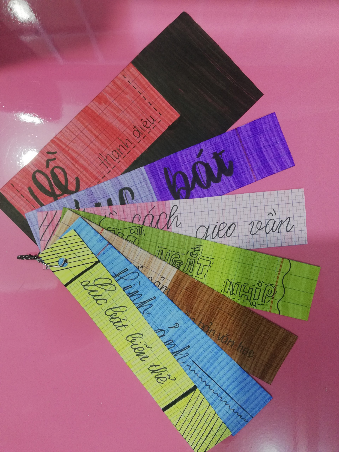 Vẽ
thanh điệu
lục bát
cách gieo vần
NGẮT NHỊP
Hình ảnh
Lục bát biến thể